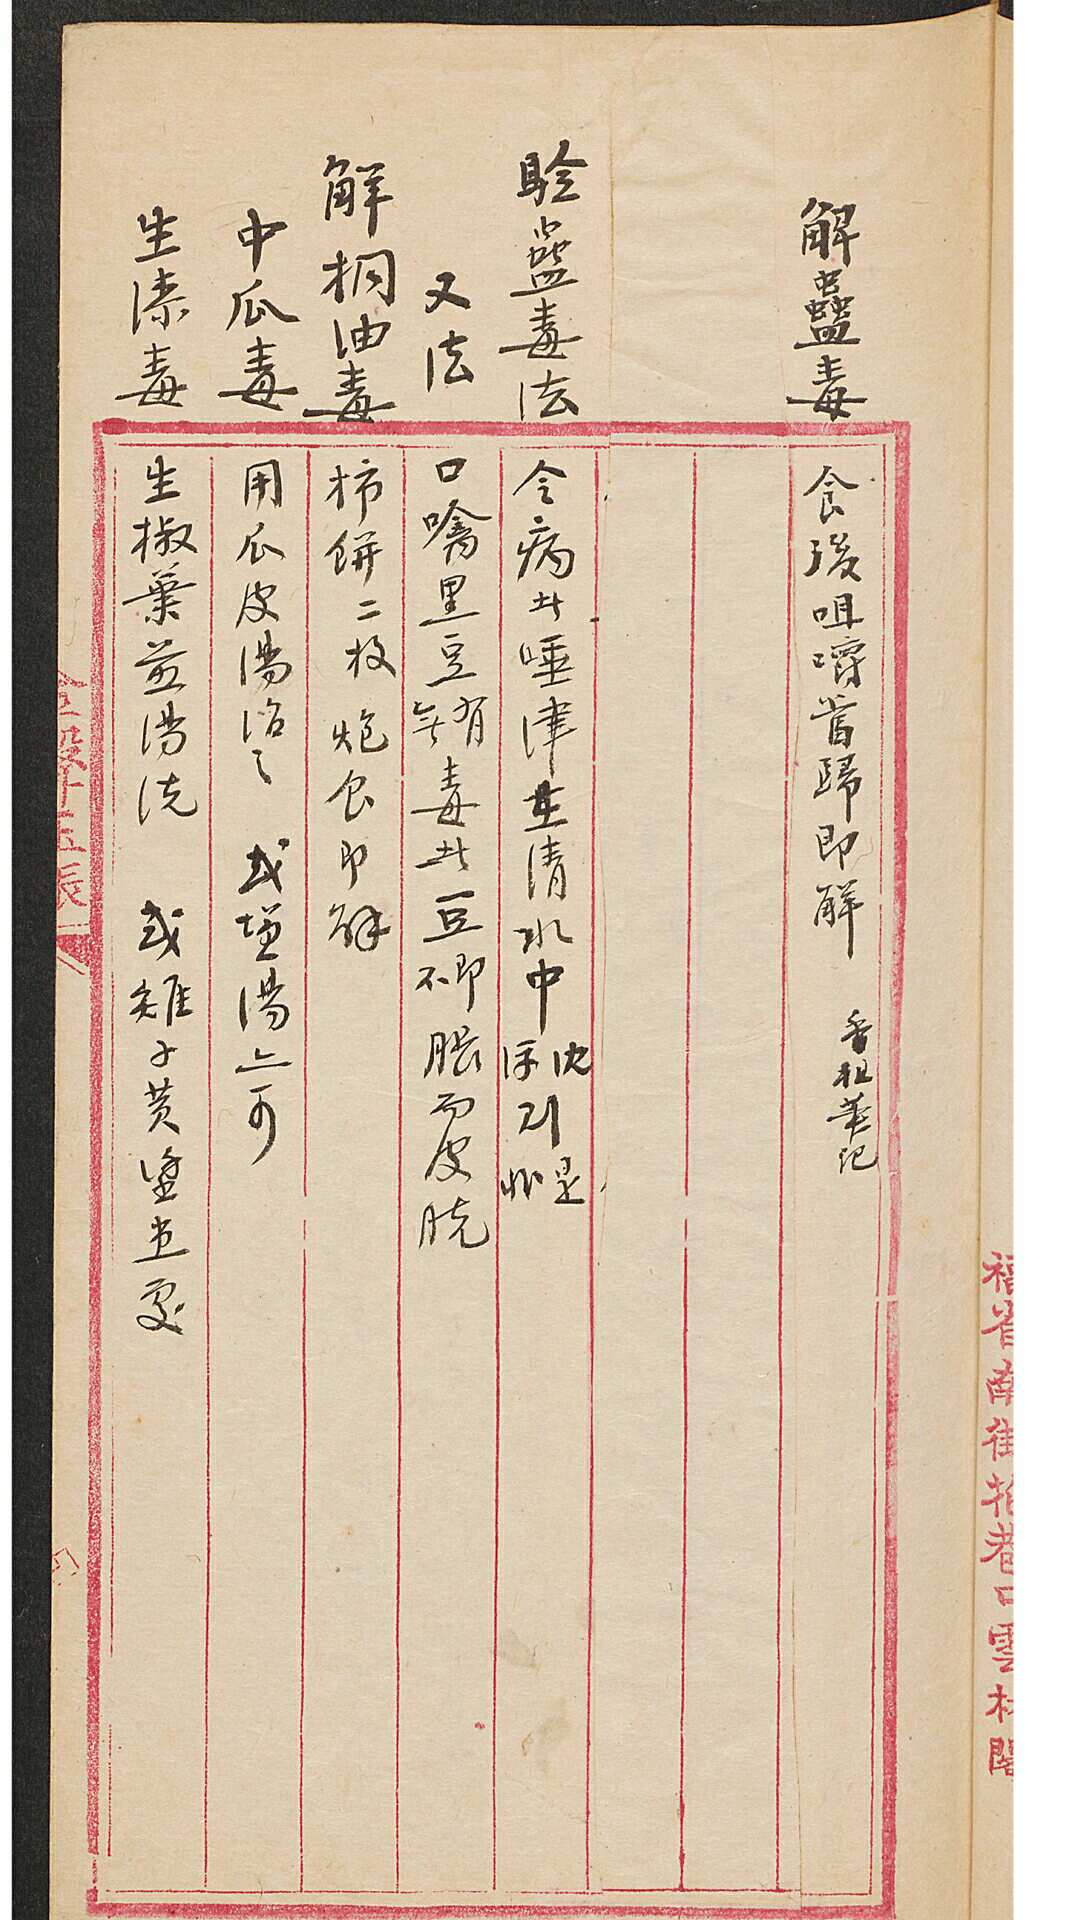 解蠱毒
食後咀嚼當歸即解 香祖筆記
驗蠱毒法
令病者唾津在清水中沈則是浮則非
又法
口噙黑豆有毒者豆即脹而皮脫無毒者豆不脹
解桐油毒
柿餅二枚炮食即解
中瓜毒
用瓜皮湯治之 或塩湯亦可
生漆毒
生椒葉煎湯洗 或雞子黃塗患處
福省南街花巷口雲林閣